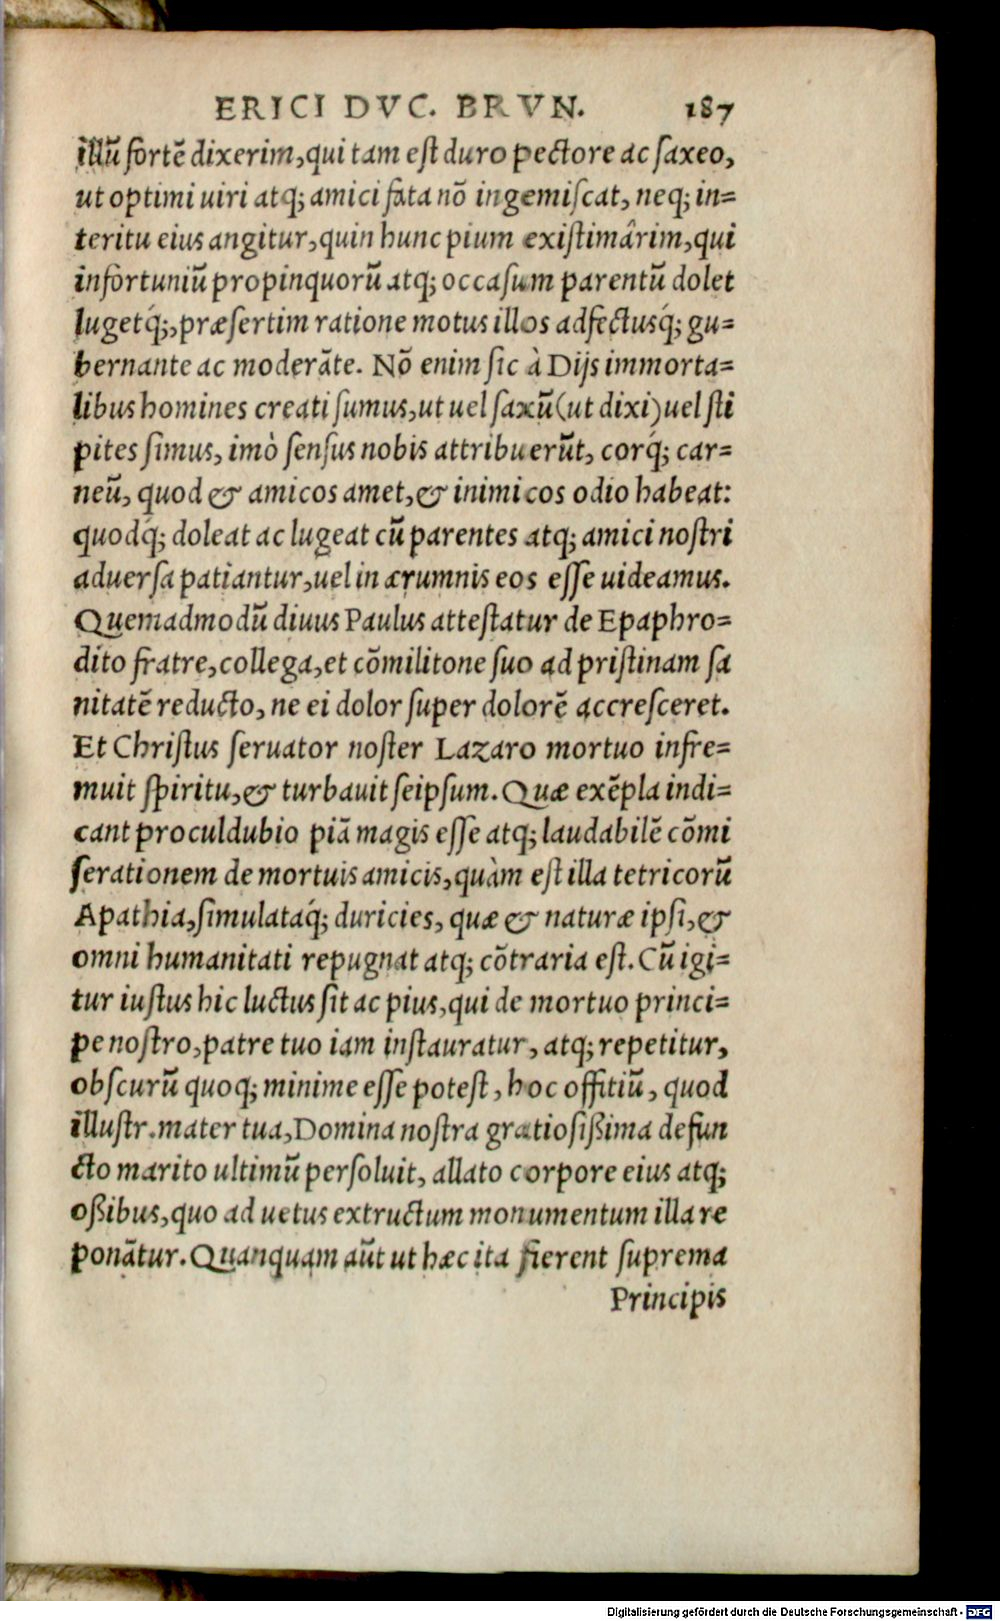 ERICI DVC. BRVN. 187
illũ fortẽ dixerim, qui tam est duro pectore ac saxeo,
ut optimi uiri atq; amici fata nõ ingemiscat, neq; in=
teritu eius angitur, quin hunc pium existimârim, qui
infortuniũ propinquorũ atq; occasum parentũ dolet
lugetq́;, præsertim ratione motus illos adfectusq́; gu=
bernante ac moderãte. Nõ enim sic à Dijs immorta=
libus homines creati sumus, ut uel saxũ (ut dixi) uel sti
pites simus, imò sensus nobis attribuerũt, corq́; car=
neũ, quod & amicos amet, & inimicos odio habeat:
quodq́; doleat ac lugeat cũ parentes atq; amici nostri
aduersa patiantur, uel in ærumnis eos esse uideamus.
Quemadmodũ diuus Paulus attestatur de Epaphro=
dito fratre, collega, et cõmilitone suo ad pristinam sa
nitatẽ reducto, ne ei dolor super dolorẽ accresceret.
Et Christus seruator noster Lazaro mortuo infre=
muit spiritu, & turbauit seipsum. Quæ exẽpla indi=
cant proculdubio piã magis esse atq; laudabilẽ cõmi
serationem de mortuis amicis, quàm est illa tetricorũ
Apathia, simulataq́; duricies, quæ & naturæ ipsi, &
omni humanitati repugnat atq; cõtraria est. Cũ igi=
tur iustus hic luctus sit ac pius, qui de mortuo princi=
pe nostro, patre tuo iam instauratur, atq; repetitur,
obscurũ quoq; minime esse potest, hoc offitiũ, quod
illustr. mater tua, Domina nostra gratiosißima defun
cto marito ultimũ persoluit, allato corpore eius atq;
oßibus, quo ad uetus extructum monumentum illa re
ponãtur. Quanquam aũt ut hæc ita fierent suprema
Principis
Digitalisierung gefördert durch die Deutsche Forschungsgemeinschaft - DFG